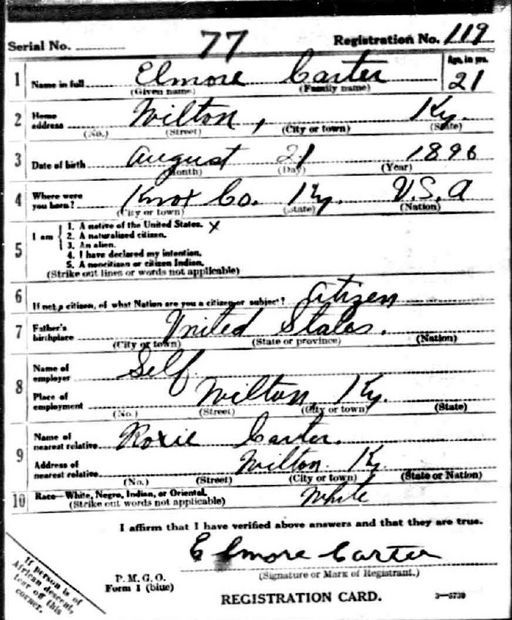 Serial No. 77 Registration No. 119
1 Name in full Elmore Carter Age, in yrs. 21
(Given name) (Family name)
2 Home address Wilton, Ky.
(No.) (Street) (City or town) (State)
3 Date of birth August 21 1896
(Month) (Day) (Year)
4 Where were you born? Knox Co. Ky. U.S.A
(City or town) (State) (Nation)
5 I am
1. A native of the United States. X
2. A naturalized citizen.
3. An alien.
4. I have declared my intention.
5. A noncitizen or citizen Indian.
(Strike out lines or words not applicable)
6 If not a citizen, of what Nation are you a citizen or subject? Citizen
7 Father's birthplace United States.
(City or town) (State or province) (Nation)
8 Name of employer Self
Place of employment Wilton, Ky.
(No.) (Street) (City or town) (State)
9 Name of nearest relative Roxie Carter.
Address of nearest relative Wilton Ky.
(No.) (Street) (City or town) (State or Nation)
10 Race—White, Negro, Indian, or Oriental. White
(Strike out words not applicable)
I affirm that I have verified above answers and that they are true.
Elmore Carter
(Signature or Mark of Registrant.)
P. M. G. O.
Form 1 (blue)
REGISTRATION CARD. 3—5730
If person is of
African descent,
tear off this
corner.